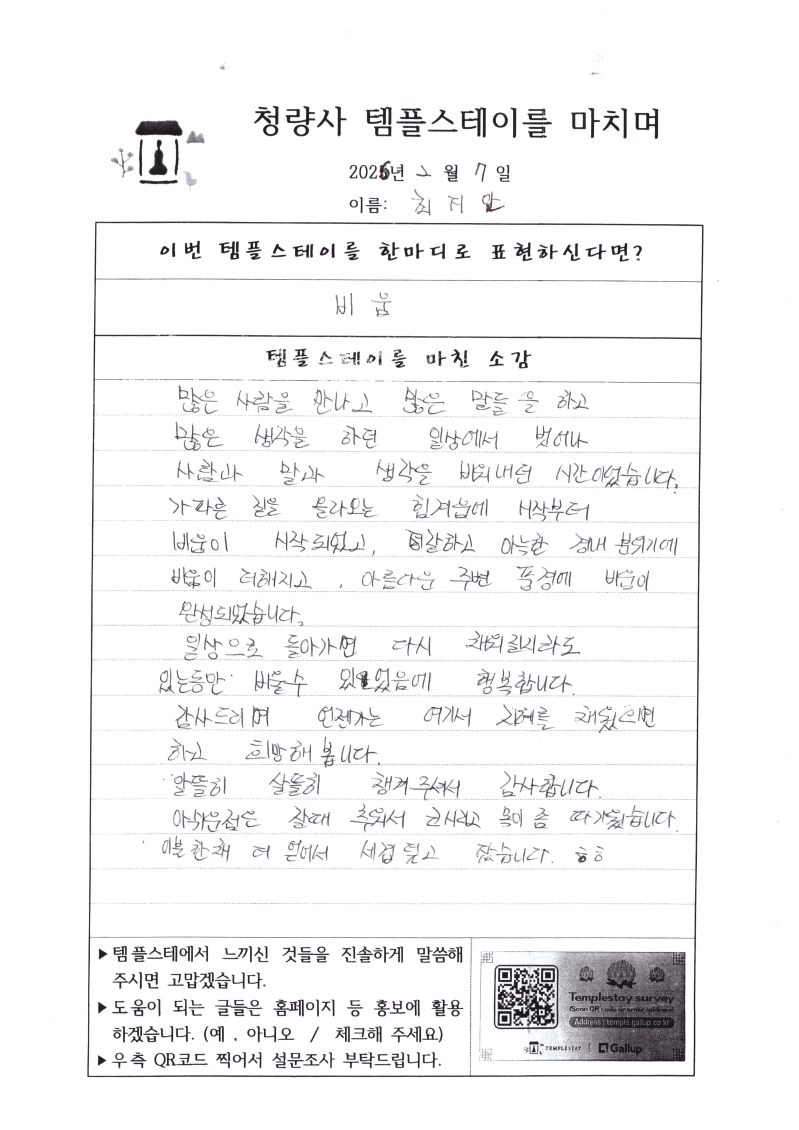 청량사 템플스테이를 마치며
2026년 2월 7일
이름: 최지안
이번 템플스테이를 한마디로 표현하신다면?
비움
템플스테이를 마친 소감
많은 사람을 만나고 많은 말들을 하고
많은 생각을 하던 일상에서 벗어나
사람과 말과 생각을 비워내던 시간이었습니다.
가파른 길을 올라오는 힘겨움에 시작부터
비움이 시작되었고, 정갈하고 아늑한 경내 분위기에
비움이 더해지고, 아름다운 주변 풍경에 비움이
완성되었습니다.
일상으로 돌아가면 다시 채워질지라도
있는동안 비울수 있었음에 행복합니다.
감사드리며 언젠가는 여기서 지혜를 채웠으면
하고 희망해 봅니다.
알뜰히 살뜰히 챙겨주셔서 감사합니다.
아쉬운점은 잘때 추워서 물이 좀 따가웠습니다.
이불 한채 더 얻어서 세겹 덮고 잤습니다. ㅎㅎ
▶템플스테에서 느끼신 것들을 진솔하게 말씀해
주시면 고맙겠습니다.
▶도움이 되는 글들은 홈페이지 등 홍보에 활용
하겠습니다. (예 , 아니오 / 체크해 주세요)
▶우측 QR코드 찍어서 설문조사 부탁드립니다.
Templestay survey
(Scan QR code or enter address)
Address : temple.gallup.co.kr
TEMPLESTAY | Gallup